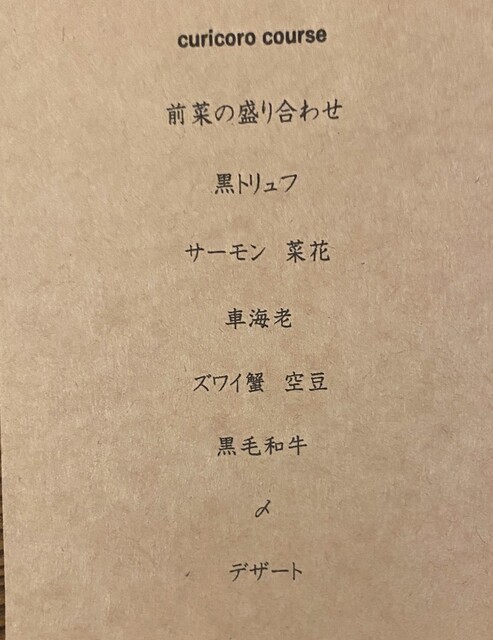 curicoro course
前菜の盛り合わせ
黒トリュフ
サーモン　菜花
車海老
ズワイ蟹　空豆
黒毛和牛
〆
デザート